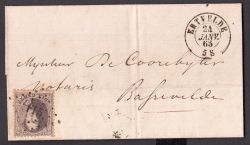 ERTVELDE
24
JANV
65
5 S
Mynheer De Coorebyter
Notaris
Bassevelde